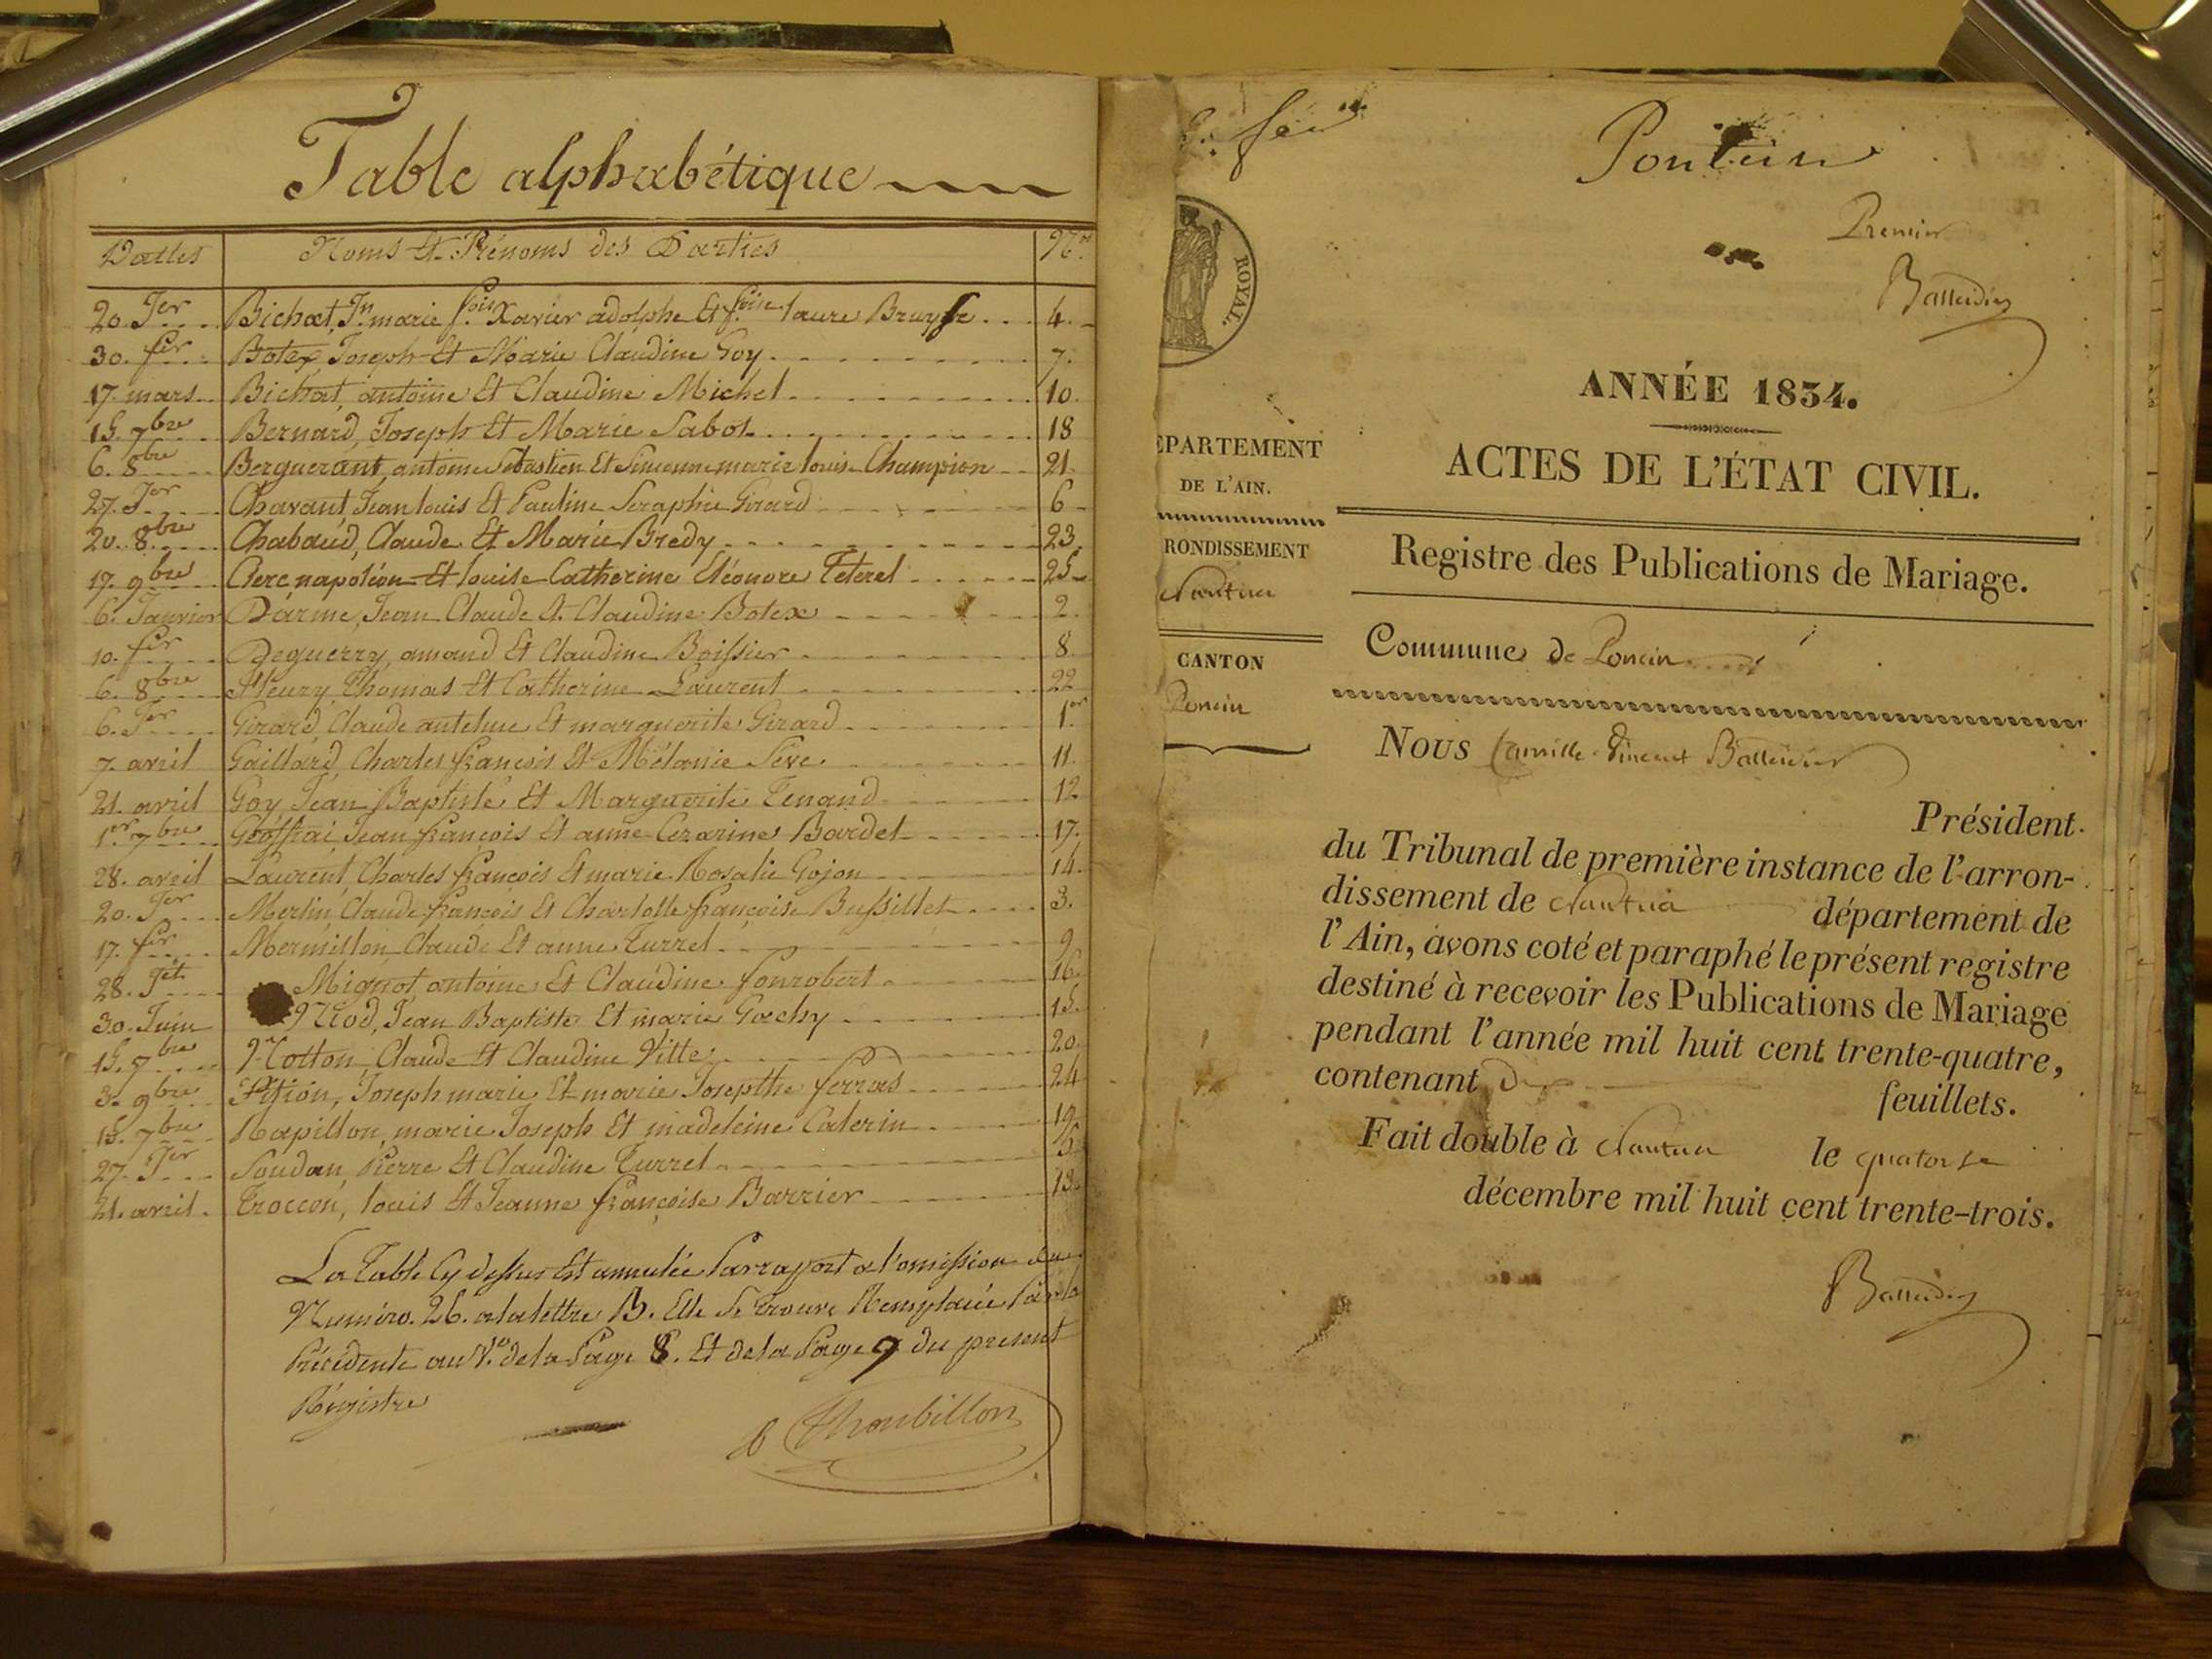 Table alphabétique
Dattes Noms Et Prénoms des Parties Nos
20. Jer Bichat, Jn. marie fois Xavier adolphe Et foise laure Bruyse 4.
30. fer Botex, Joseph Et Marie Claudine Goy 7.
17. mars Bichat, antoine Et Claudine Michel 10.
15. 7bre Bernard, Joseph Et Marie Sabot 18
6. 8bre Berguerant, antoine Sebastien Et Simonne marie louise Champion 21
27. Jer Chavant, Jean louis Et Pauline Seraphie Girard 6
20. 8bre Chabaud, Claude Et Marie Bredy 23.
17. 9bre Clerc napoléon Et louise Catherine Eléonore Teterel 25
6. Janvier Darme, Jean Claude Et Claudine Botex 2.
10. fer Deguerry, amand Et Claudine Boissier 8
6. 8bre Fleury, Thomas Et Catherine Laurent 22
6. Jer Girard, Claude antelme Et marguerite Girard 1er
7. avril Gaillard, Charles françois Et Mélanie Séve 11.
21. avril Goy, Jean Baptiste Et Marguerite Tenand 12
1er 7bre Geoffrai, Jean françois Et anne Cezarine Bardet 17.
28. avril Laurent, Charles françois Et marie Rosalie Gojon 14.
20. Jer Merlin, Claude françois Et Charlotte françoise Bussillet 3.
17. fer Mermillon, Claude Et anne Turrel 9
28. Jet Mignot, antoine Et Claudine fonrobert 16.
30. Juin Niod, Jean Baptiste Et marie Gachy 15.
15. 7bre Notton, Claude Et Claudine Vitte 20.
3. 9bre Pition, Joseph marie Et marie Josepthe ferras 24
15. 7bre Rapillon, marie Joseph Et madeleine Caterin 19
27. Jer Soudan, Pierre Et Claudine Turrel 5.
21. avril Troccon, louis Et Jeanne françoise Barrier 13.
La Table Cy dessus Est annulée Par rapport a l'omission du
Numéro. 26. a la lettre B. Elle Se trouve Remplacée Par la
Précédente au Vo. de la Page 8. Et de la Page 9 du present
Régistre
Thoubillon
Poncin
Premier
Balleidier
ROYAL.
ANNÉE 1834.
ACTES DE L'ÉTAT CIVIL.
EPARTEMENT
DE L'AIN.
RONDISSEMENT
Nantua
CANTON
Poncin
Registre des Publications de Mariage.
Commune de Poncin
Nous Camille Vincent Balleidier
Président
du Tribunal de première instance de l'arron-
dissement de Nantua département de
l'Ain, avons coté et paraphé le présent registre
destiné à recevoir les Publications de Mariage
pendant l'année mil huit cent trente-quatre,
contenant feuillets.
Fait double à Nantua le quatorze
décembre mil huit cent trente-trois.
Balleidier